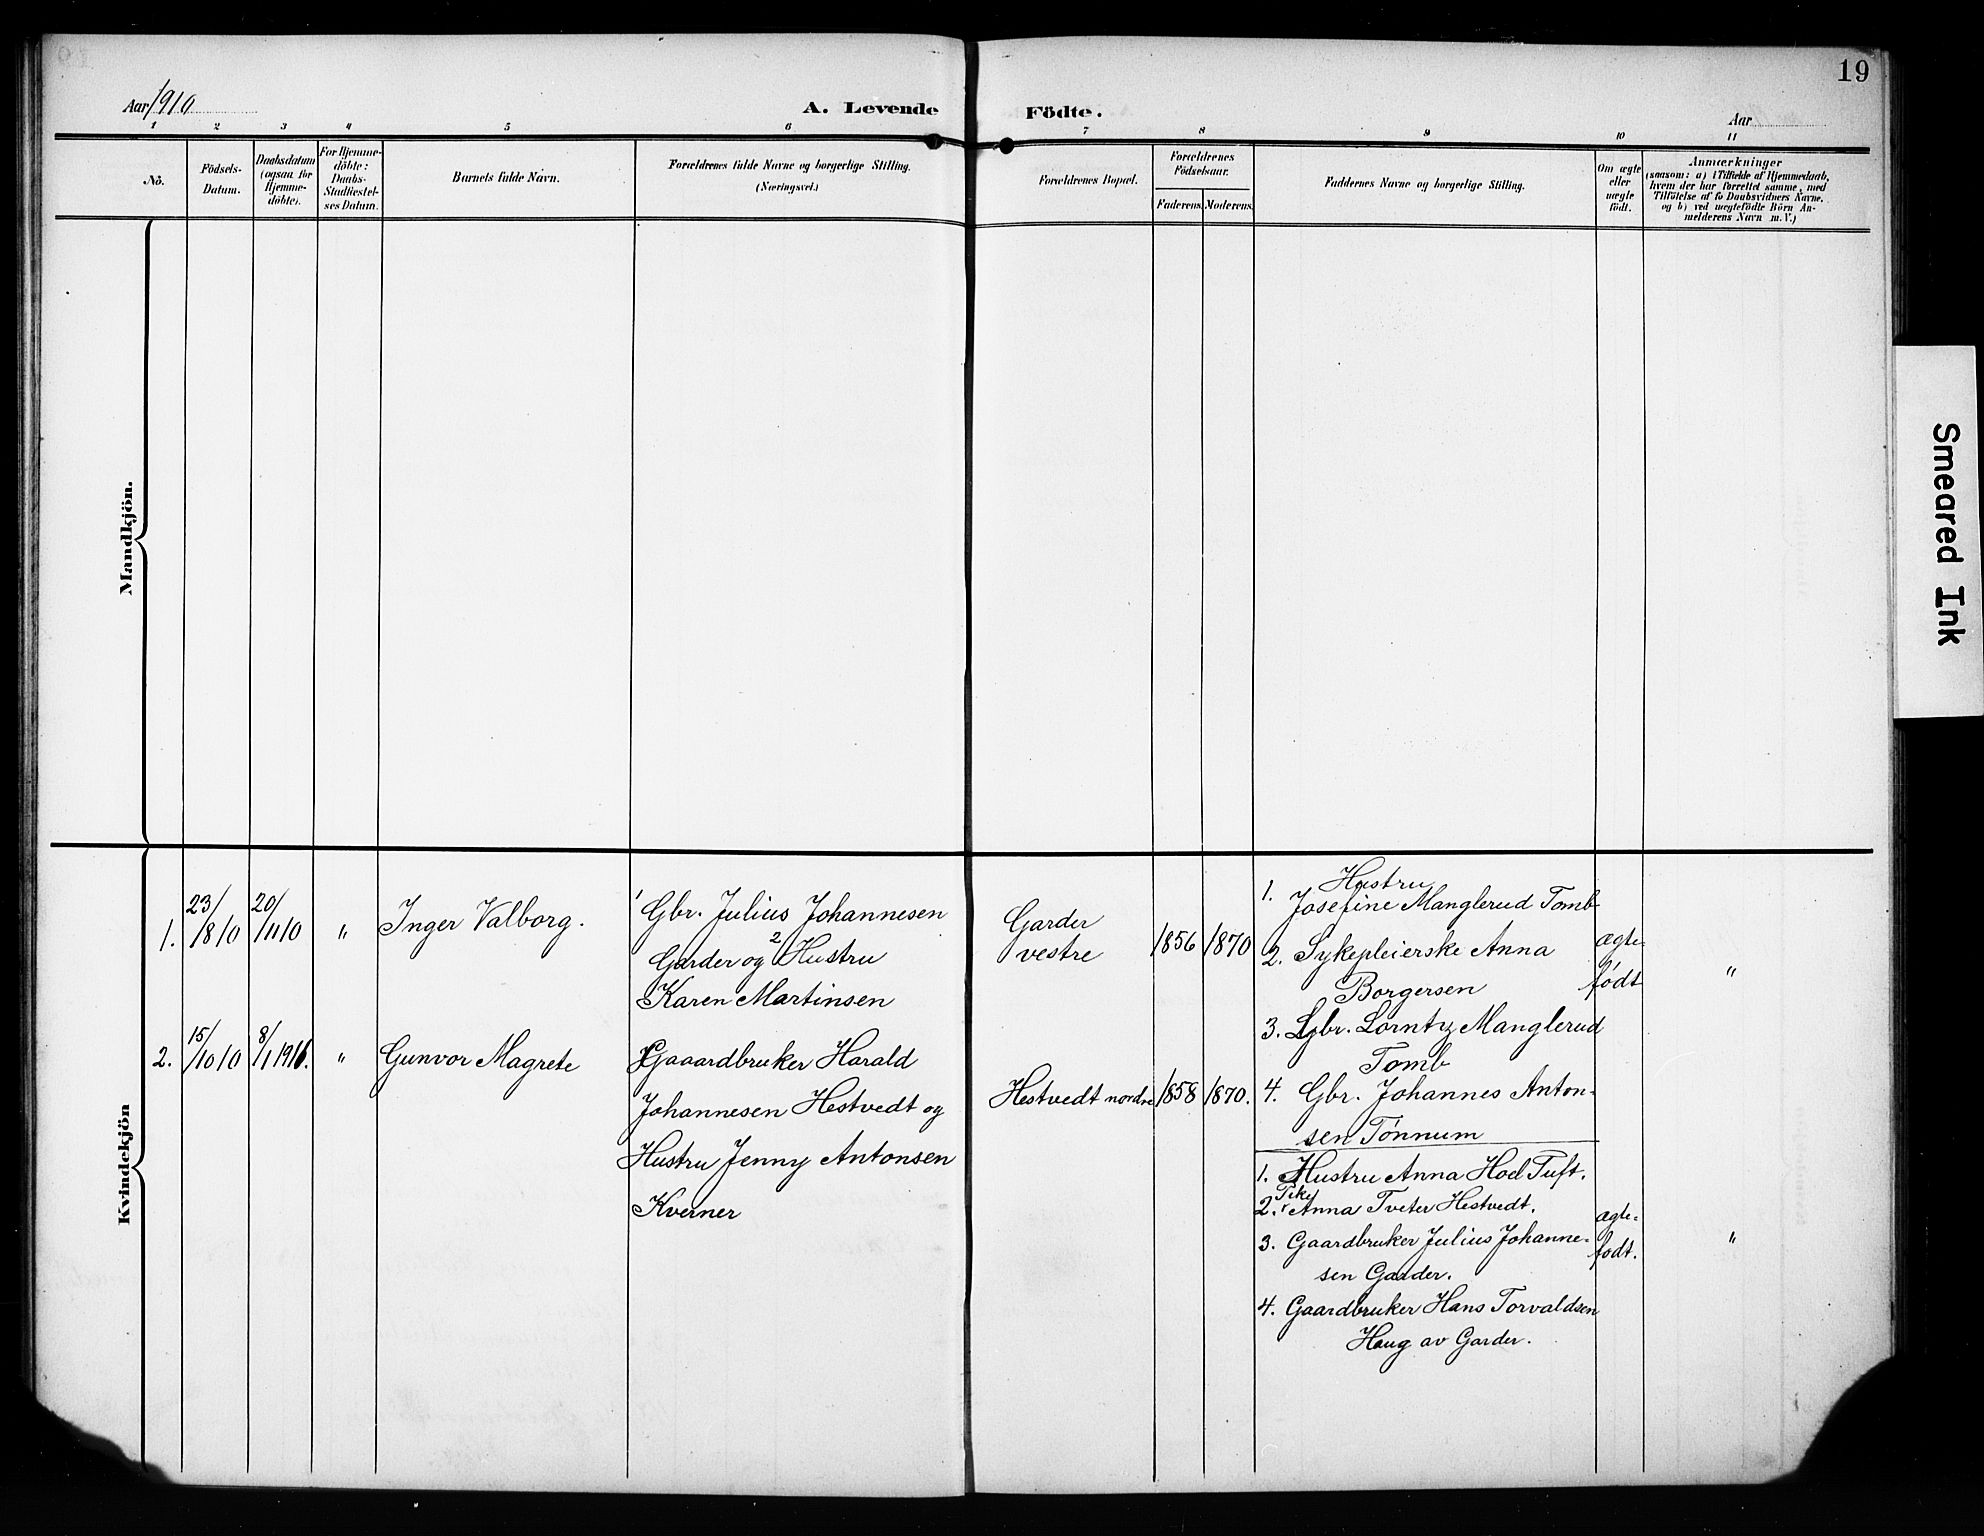 19
Aar 1910
A. Levende Födte.
Aar
1 2 3 4 5 6 7 8 9 10 11
No.
Födsels-
Datum.
Daabsdatum
(ogsaa for
Hjemme-
döbte).
For Hjemme-
döbte:
Daabs-
Stadfæstel-
ses Datum.
Barnets fulde Navn.
Forældrenes fulde Navne og borgerlige Stilling.
(Næringsvei.)
Forældrenes Bopæl.
Forældrenes
Födselsaar.
Faderens. Moderens.
Faddernes Navne og borgerlige Stilling.
Om ægte
eller
uægte
født.
Anmærkninger
(saasom: a) i Tilfælde af Hjemmedaab,
hvem der har forrettet samme, med
Tilföielse af to Daabsvidners Navne,
og b) ved uægtefödte Börn An-
melderens Navn m. V.)
Mandkjön.
Kvindekjön
1.
23/
/8 10
20/
/11 10
"
Inger Valborg.
1 Gbr. Julius Johannesen
Garder og 2 Hustru
Karen Martinsen
Garder
vestre
1856
1870
1. Hustru
Josefine Manglerud Tomb
2. Sykepleierske Anna
Borgersen
3. Gbr. Lorntz Manglerud
Tomb
4. Gbr. Johannes Anton-
sen Tönnum
ægte-
födt
"
2.
15/
/10 10
8/
/1 1911.
"
Gunvor Magrete
Gaaardbruker Harald
Johannesen Hestvedt og
Hustru Jenny Antonsen
Kverner
Hestvedt nordre
1858
1870.
1. Hustru Anna Hoel Tuft.
Pike
2. Anna Tveter Hestvedt.
3. Gaardbruker Julius Johanne-
sen Garder.
4. Gaardbruker Hans Torvaldsen
Haug av Garder.
ægte-
fodt.
"
Smeared Ink